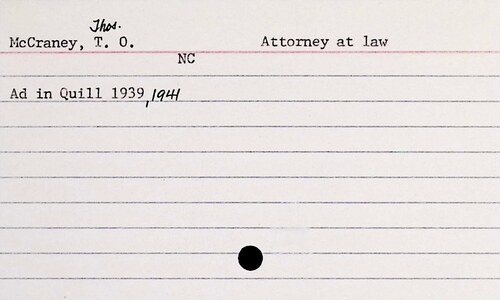 Thos.
McCraney, T. O. Attorney at law
NC
Ad in Quill 1939, 1941